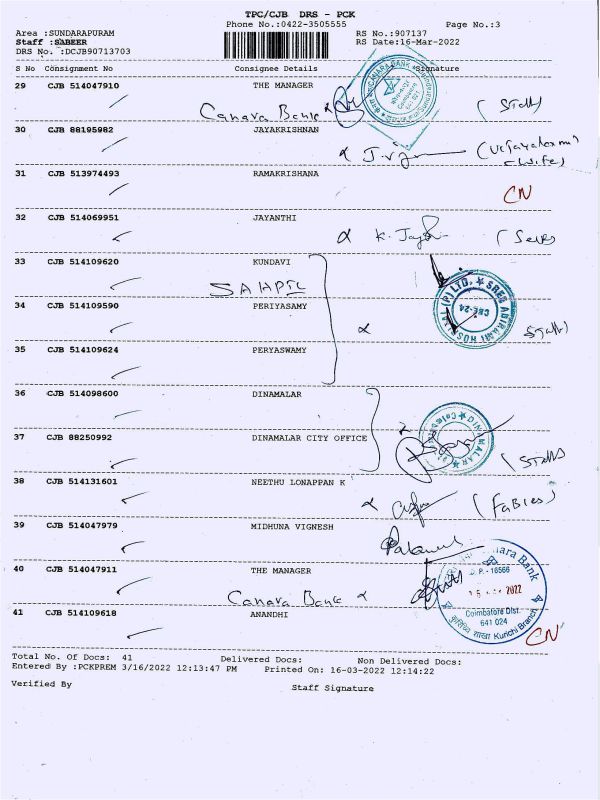 TPC/CJB DRS - PCK
Phone No.:0422-3505555 Page No.:3
Area :SUNDARAPURAM RS No.:907137
Staff :SABEER RS Date:16-Mar-2022
DRS No. :DCJB90713703
S No Consignment No Consignee Details Signature
29 CJB 514047910 THE MANAGER
Canara Bank (Staff)
30 CJB 88195982 JAYAKRISHNAN
(Vijayalaxmi
Wife)
31 CJB 513974493 RAMAKRISHANA
CN
32 CJB 514069951 JAYANTHI
K. Jay (Self)
33 CJB 514109620 KUNDAVI
SAHPTL
34 CJB 514109590 PERIYASAMY
HOSPITAL (P) LTD. ★ SREE ABIRAMI
CBE-24
Staff)
35 CJB 514109624 PERYASWAMY
36 CJB 514098600 DINAMALAR
★ DINAMALAR ★
37 CJB 88250992 DINAMALAR CITY OFFICE
(Staff)
38 CJB 514131601 NEETHU LONAPPAN K
(Fabies)
39 CJB 514047979 MIDHUNA VIGNESH
40 CJB 514047911 THE MANAGER
Canara Bank
Canara Bank
D.P.-16566
2022
Coimbatore Dist.
641 024
Kurichi Branch
41 CJB 514109618 ANANDHI
CN
Total No. Of Docs: 41 Delivered Docs: Non Delivered Docs:
Entered By :PCKPREM 3/16/2022 12:13:47 PM Printed On: 16-03-2022 12:14:22
Verified By Staff Signature